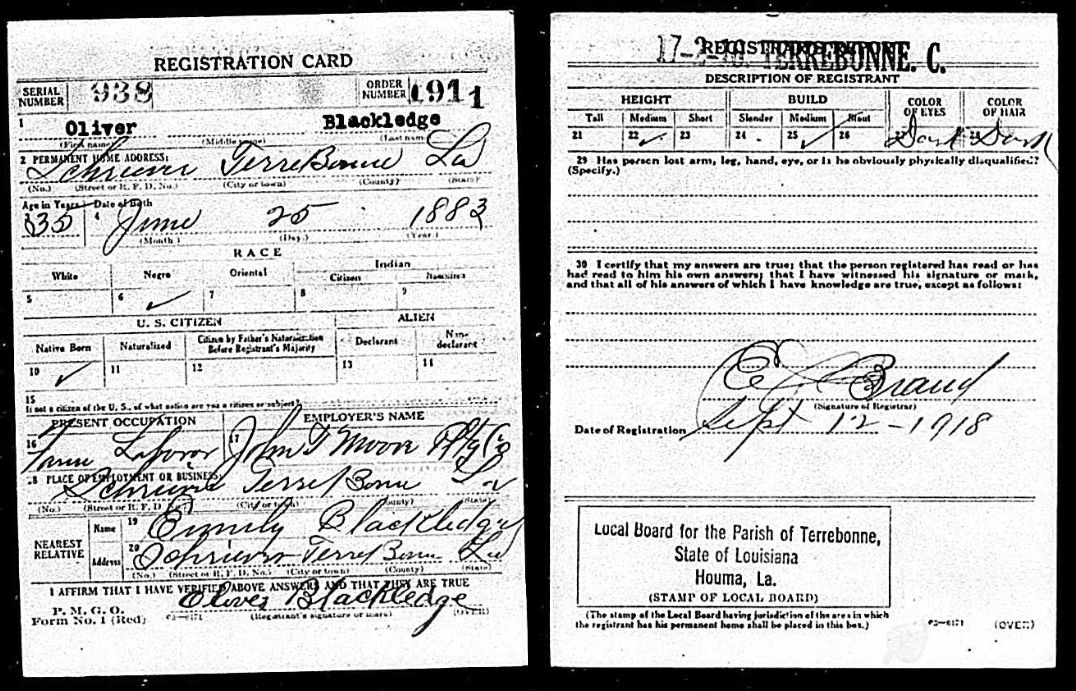 REGISTRATION CARD
SERIAL NUMBER 938 ORDER NUMBER 1911
1 Oliver Blackledge
(First name) (Middle name) (Last name)
2 PERMANENT HOME ADDRESS:
Schriever TerreBonne La
(No.) (Street or R. F. D. No.) (City or town) (County) (State)
Age in Years Date of Birth
35 4 June 25 1883
(Month) (Day) (Year)
RACE
White Negro Oriental Indian
Citizen Noncitizen
5 6 ✓ 7 8 9
U. S. CITIZEN ALIEN
Native Born Naturalized Citizen by Father's Naturalization Before Registrant's Majority Declarant Non-declarant
10 ✓ 11 12 13 14
15
If not a citizen of the U. S., of what nation are you a citizen or subject?
PRESENT OCCUPATION EMPLOYER'S NAME
16 Farm Laboror 17 John T Moore Pltg Co
18 PLACE OF EMPLOYMENT OR BUSINESS:
Schriever TerreBonne La
(No.) (Street or R. F. D. No.) (City or town) (County) (State)
NEAREST RELATIVE
Name 19 Emily Blackledge
Address 20 Schriever TerreBonne La
(No.) (Street or R. F. D. No.) (City or town) (County) (State)
I AFFIRM THAT I HAVE VERIFIED ABOVE ANSWERS AND THAT THEY ARE TRUE
Oliver Blackledge
P. M. G. O.
Form No. 1 (Red) 03—6171 (Registrant's signature or mark) (OVER)
REGISTRAR'S REPORT
17-2-19 TERREBONNE. C.
DESCRIPTION OF REGISTRANT
HEIGHT BUILD COLOR OF EYES COLOR OF HAIR
Tall Medium Short Slender Medium Stout
21 22 ✓ 23 24 25 ✓ 26 27 Dark 28 Dark
29 Has person lost arm, leg, hand, eye, or is he obviously physically disqualified?
(Specify.)
30 I certify that my answers are true; that the person registered has read or has
had read to him his own answers; that I have witnessed his signature or mark,
and that all of his answers of which I have knowledge are true, except as follows:
Braud
(Signature of Registrar)
Date of Registration Sept 12-1918
Local Board for the Parish of Terrebonne,
State of Louisiana
Houma, La.
(STAMP OF LOCAL BOARD)
(The stamp of the Local Board having jurisdiction of the area in which
the registrant has his permanent home shall be placed in this box.)
03—6171 (OVER)